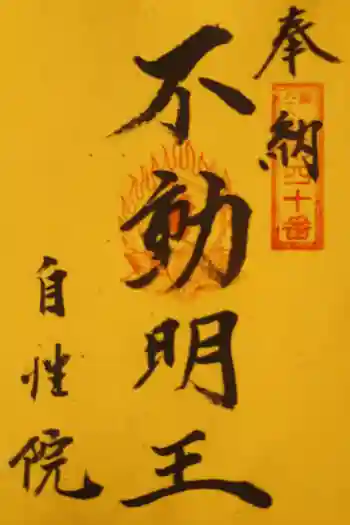 奉納
四十番
不動明王
自性院